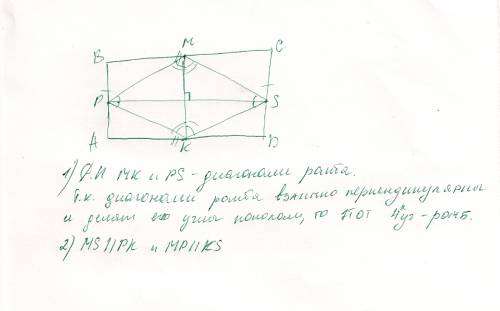 M
B
C
P
S
A
K
D
1) Д.П MK и PS - диагонали ромба.
т.к. диагонали ромба взаимно перпендикулярны
и делят его углы пополам, то этот 4х уг - ромб.
2) MS || PK и MP || KS